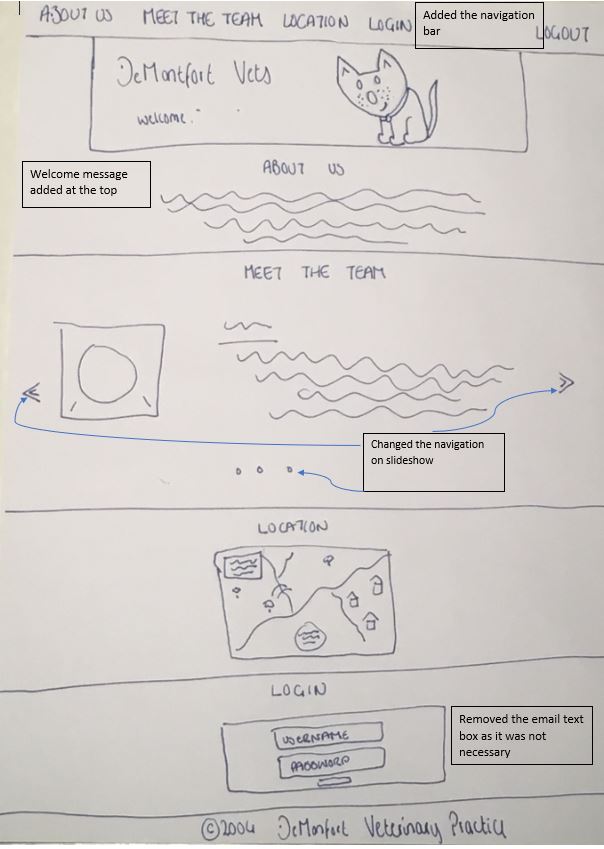 ABOUT US MEET THE TEAM LOCATION LOGIN LOGOUT
Added the navigation
bar
DeMontfort Vets
welcome.
Welcome message
added at the top
ABOUT US
MEET THE TEAM
Changed the navigation
on slideshow
LOCATION
LOGIN
USERNAME
PASSWORD
Removed the email text
box as it was not
necessary
©2004 DeMonfort Veterinary Practice